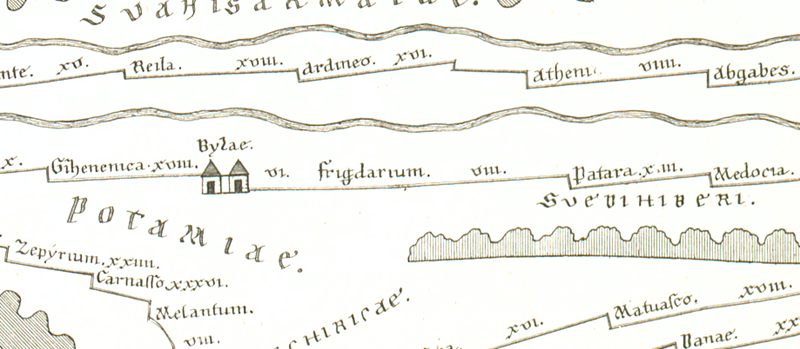 SVANISARMATAE.
nte. xv. Reila. xviii. ardineo. xvi. Atheni viiii. abgabes.
Byzae.
x. Gihenenica. xviii. vi. frigdarium. viii. Patara. x.iii. Medocia.
SVEVIHIBERI.
POTAMIAE.
Zepyrium. xxiiii.
Carnasso xxxvi.
Melantum.
viii.
CHIRICAE.
xvi. Matuasco. xviii.
Banae. xx